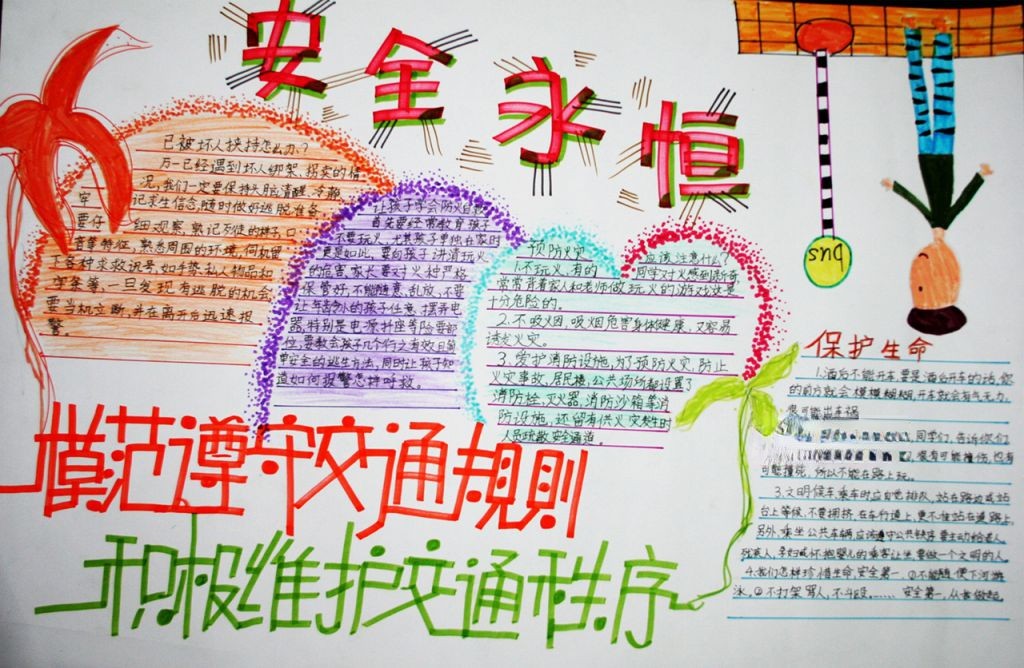 安全永恒
已被坏人挟持怎么办？
万一已经遇到坏人绑架、拐卖的情
况，我们一定要保持头脑清醒、冷静
牢记求生信念，随时做好逃脱准备。
要仔细观察，熟记歹徒的样子、口
音等特征，熟悉周围的环境，伺机留
下各种求救讯号，如手势、私人物品和
字条等，一旦发现有逃脱的机会，
要当机立断，并在离开后迅速报
警。
让孩子学会防火自救
首先要经常教育孩子
不要玩火，尤其孩子单独在家时
更是如此，要向孩子讲清玩火
的危害，家长要对火种严格
保管好，不能随意乱放，不要
让年幼的孩子任意摆弄电
器，特别是电源插座等险要部
位，要教会孩子几个行之有效且简
单安全的逃生方法，同时让孩子知
道如何报警怎样呼救。
预防火灾 应该注意什么？
1.不玩火，有的同学对火感到新奇
常常背着家人和老师做玩火的游戏，这是
十分危险的。
2.不吸烟，吸烟危害身体健康，又容易
诱发火灾。
3.爱护消防设施，为了预防火灾，防止
火灾事故，居民楼、公共场所都设置了
消防栓、灭火器、消防沙箱等消
防设施，还留有供火灾发生时
人员疏散安全通道。
bus
保护生命
1.酒后不能开车，要是酒后开车的话，你
的前方就会模模糊糊，开车就会有气无力，
很可能出车祸
同学们，告诉你们
很有可能撞伤，也有
可能撞死，所以不能在路上玩。
3.文明候车，乘车时应自觉排队，站在路边或站
台上等候，不要拥挤，在车行道上，更不准站在道路上。
另外，乘坐公共车辆应该遵守公共秩序要主动给老人、
残疾人、孕妇或怀抱婴儿的乘客让坐要做一个文明的人。
4.我们怎样珍惜生命，安全第一，①不能随便下河游
泳，②不打架骂人，不斗殴……安全第一，从我做起。
模范遵守交通规则
积极维护交通秩序